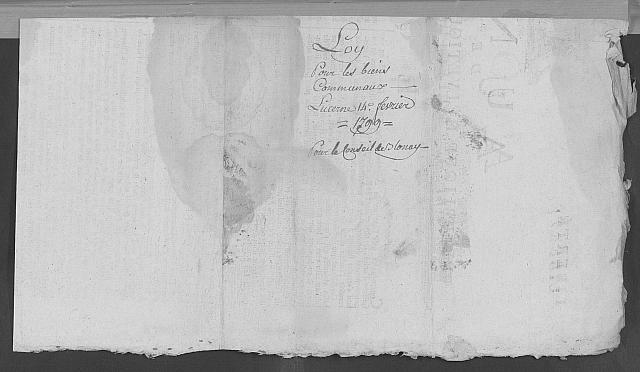 Loy
Pour les biens
Communaux
Lucerne 14e. fevrier
=1799=
Pour le Conseil de Blonay